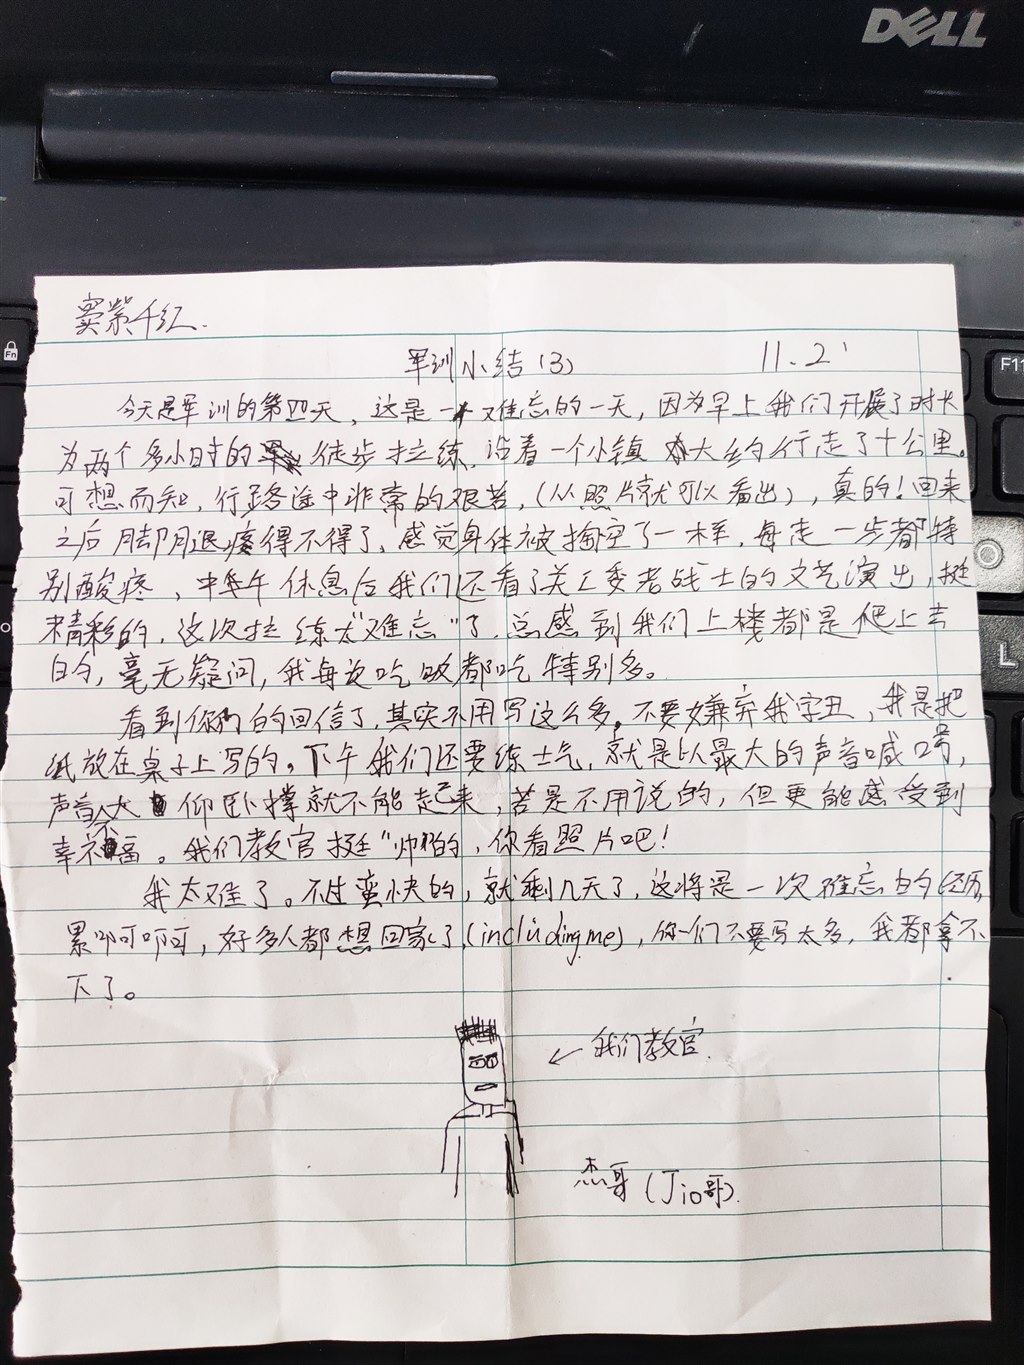 DELL
Fn
F11
L
窦紫千红.
军训小结(3) 11.21
今天是军训的第四天，这是一个难忘的一天，因为早上我们开展了时长
为两个多小时的徒步拉练，沿着一个小镇大约行走了十公里。
可想而知，行路途中非常的艰苦，(从照片就可以看出)，真的！回来
之后脚腿疼得不得了，感觉身体被掏空了一样，每走一步都特
别酸疼，中午休息后我们还看了关工委老战士的文艺演出，挺
精彩的，这次拉练太"难忘"了，总感到我们上楼都是爬上去
的，毫无疑问，我每次吃饭都吃特别多。
看到你们的回信了，其实不用写这么多。不要嫌弃我字丑，我是把
纸放在桌子上写的。下午我们还要练士气，就是以最大的声音喊口号，
声音不大仰卧撑就不能起来，苦是不用说的，但更能感受到
幸福。我们教官挺"帅"的，你看照片吧！
我太难了。不过蛮快的，就剩几天了，这将是一次难忘的经历，
累啊啊，好多人都想回家了(including me)，你们不要写太多，我都拿不
下了。
← 我们教官.
杰哥(Jio哥).